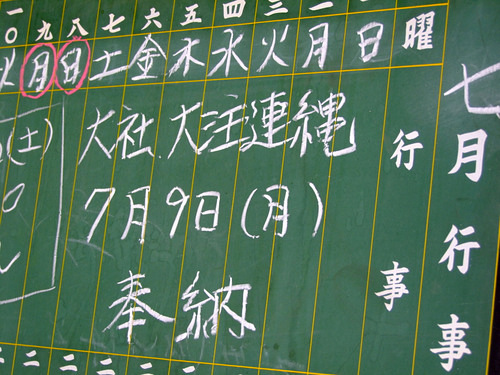 七月行事
曜
行事
日
月
三 火
四 水
五 木
六 金
七 土
八 日
九 月
一〇 火
大社大注連縄
7月9日(月)
奉納
(土)